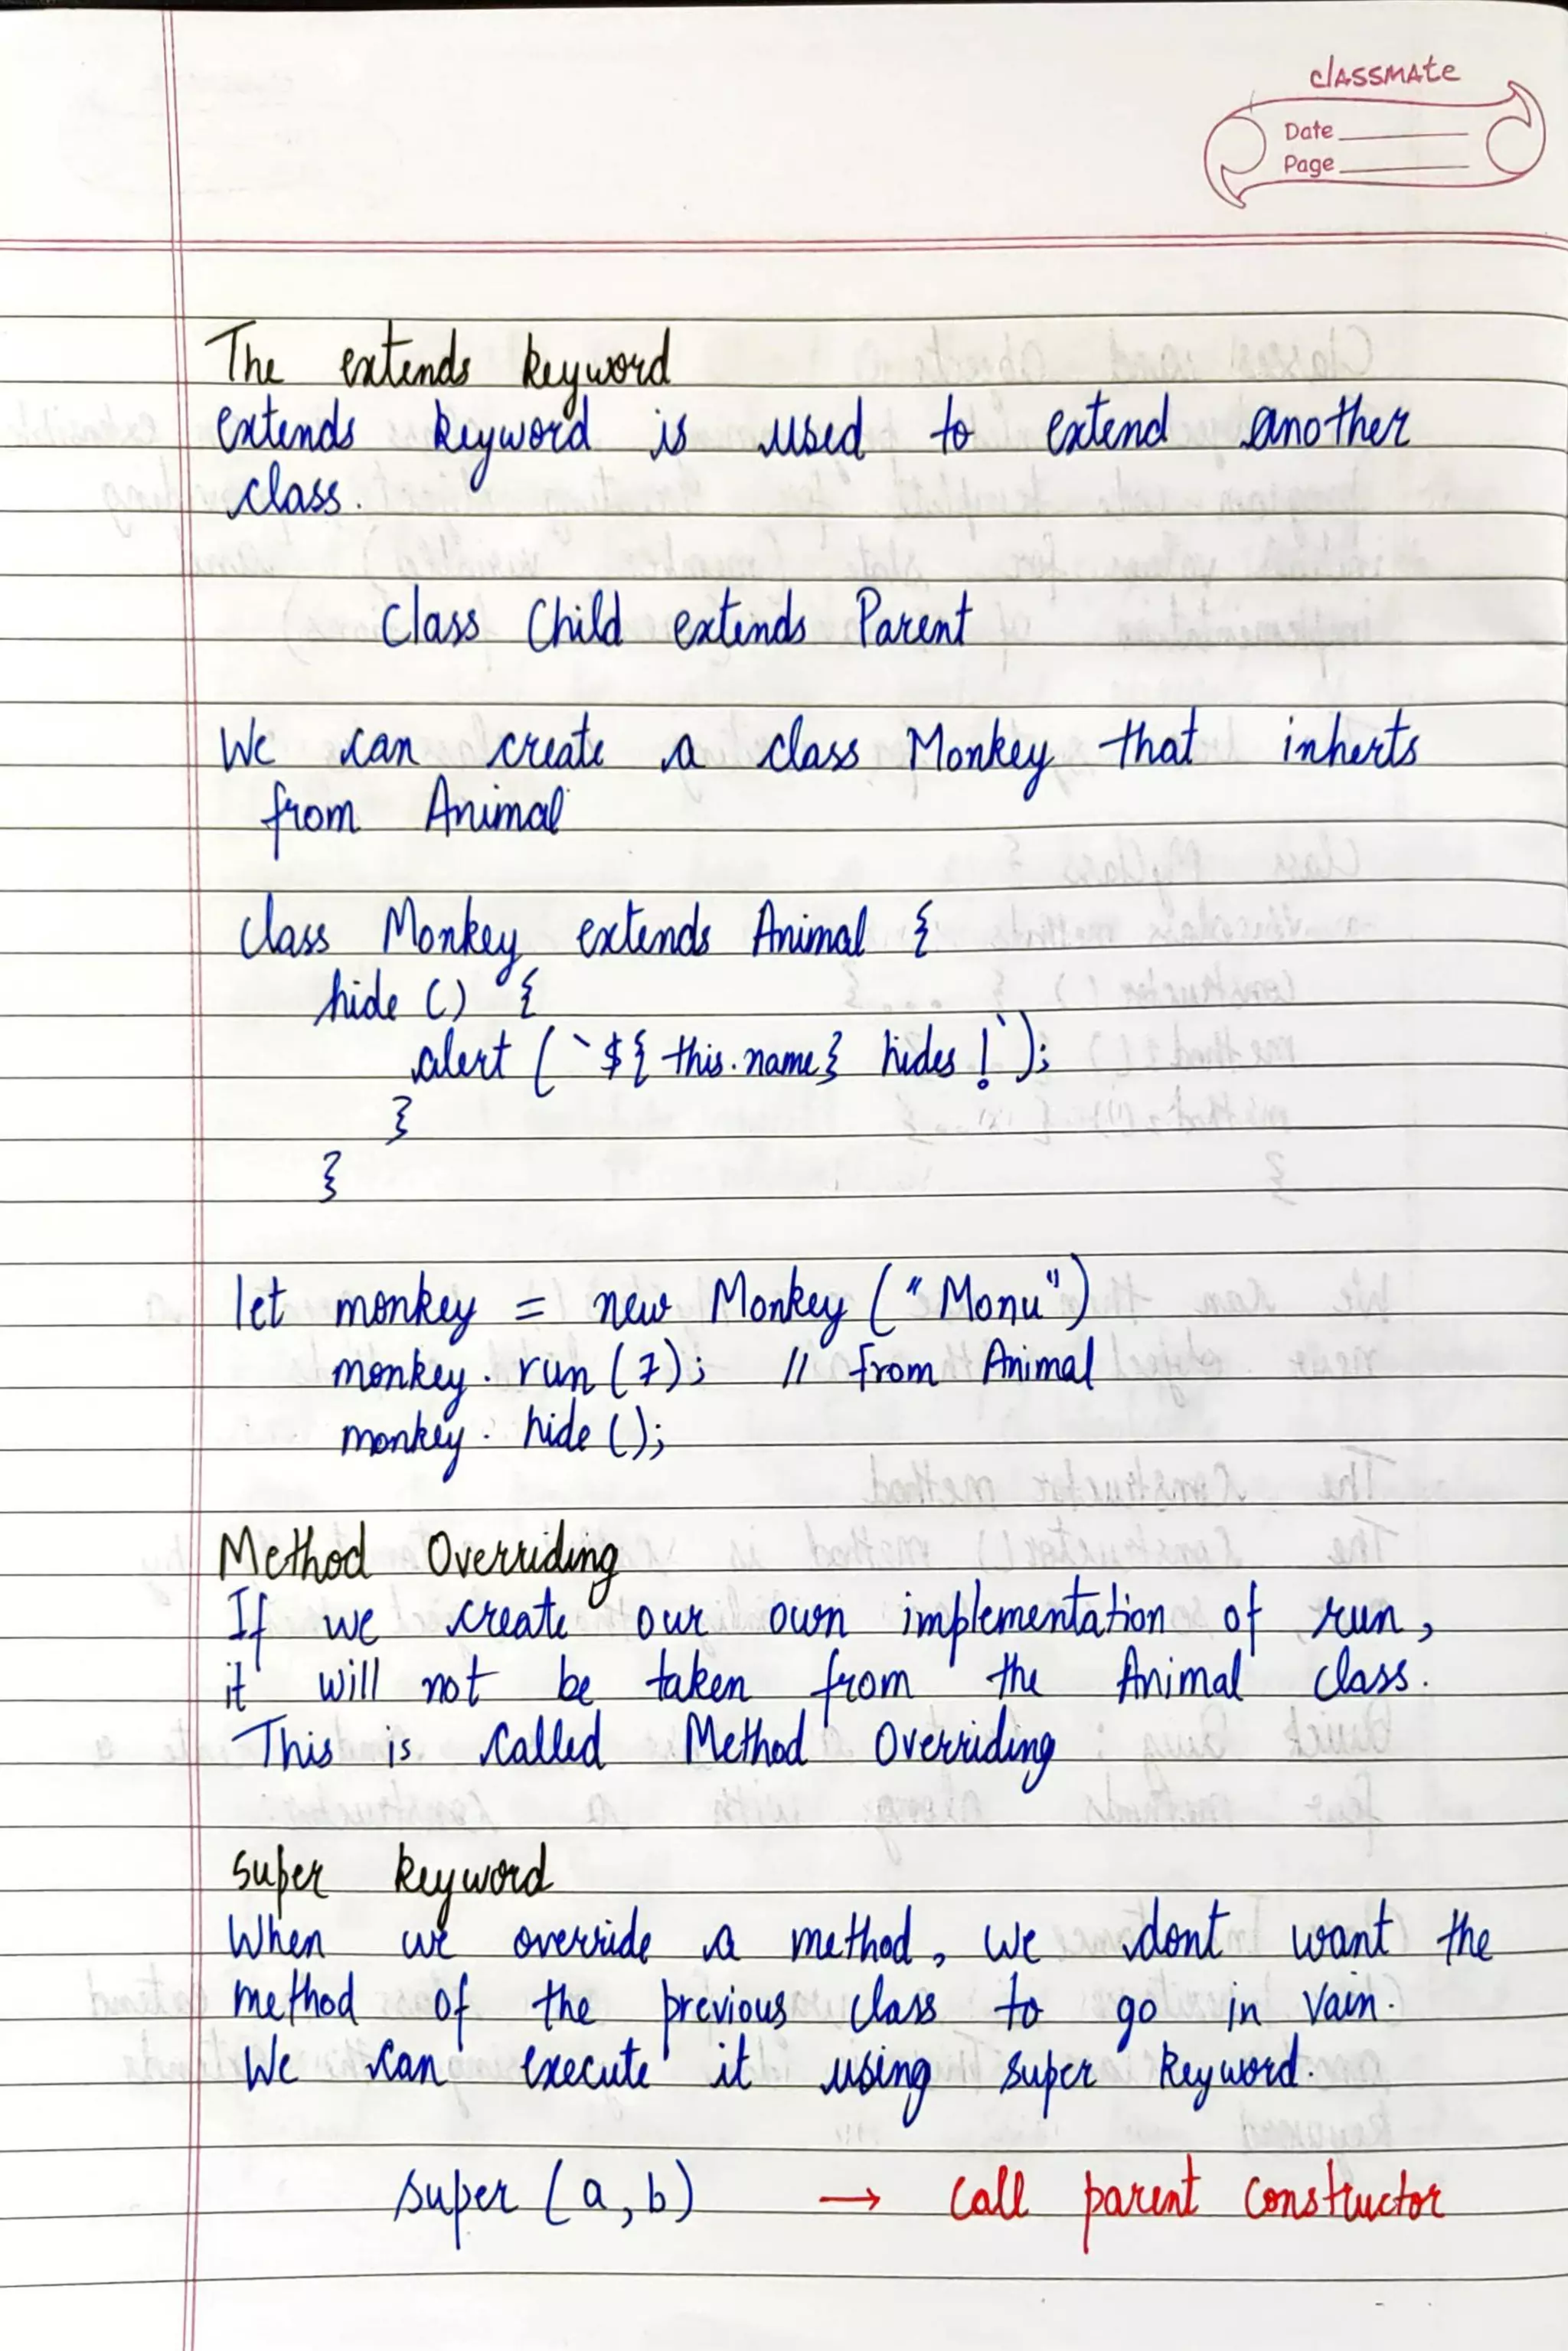 classmate
Date
Page
The extends keyword
extends keyword is used to extend another
class.
Class Child extends Parent
We can create a class Monkey that inherts
from Animal
class Monkey extends Animal {
hide () {
alert (`${this.name} hides!`);
}
}
let monkey = new Monkey ("Monu")
monkey. run (7); // from Animal
monkey. hide ();
Method Overriding
If we create our own implementation of run,
it will not be taken from the Animal class.
This is called Method Overriding
super keyword
When we override a method, we dont want the
method of the previous class to go in vain.
We can execute it using super keyword.
super (a, b) → call parent constructor